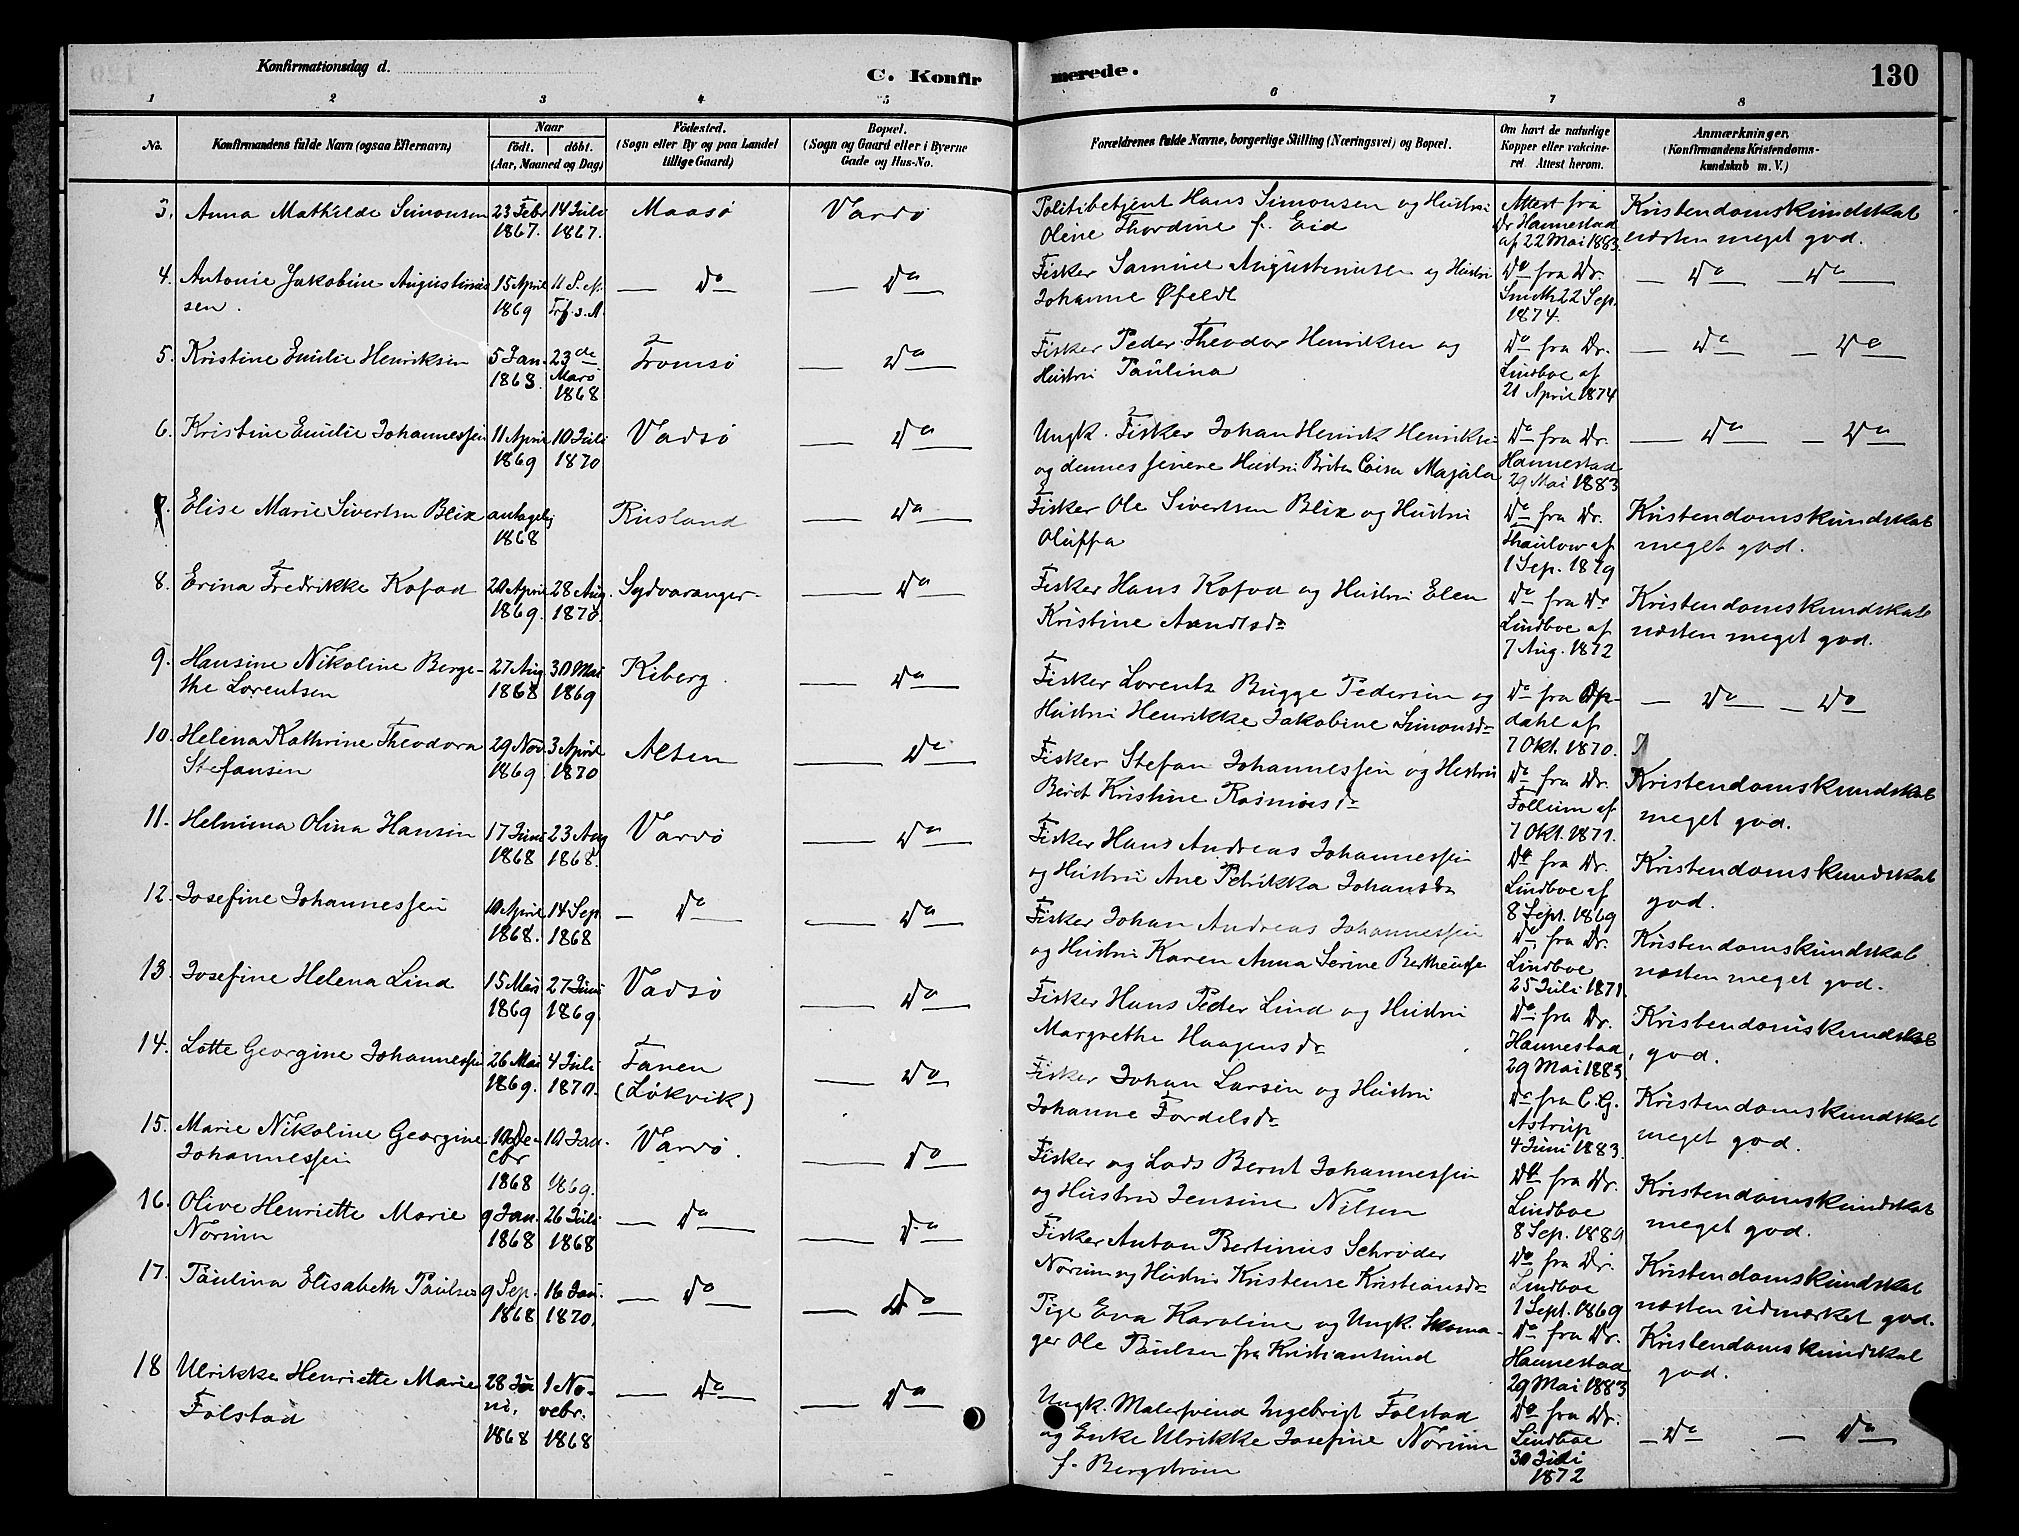 Konfirmationsdag d.
C. Konfirmerede.
130
1 2 3 4 5 6 7 8
No.
Konfirmandens fulde Navn (ogsaa Efternavn)
Naar
födt. döbt.
(Aar, Maaned og Dag)
Födested.
(Sogn eller By og paa Landet
tillige Gaard)
Bopæl.
(Sogn og Gaard eller i Byerne
Gade og Hus-No.
Forældrenes fulde Navne, borgerlige Stilling (Næringsvei) og Bopæl.
Om havt de naturlige
Kopper eller vakcine-
ret Attest herom.
Anmærkninger.
(Konfirmandens Kristendoms-
kundskab m. V.)
3. Anna Mathilde Simonsen 23 Febr 1867. 14 Juli 1867. Maasö Vardö
Politibetjent Hans Simonsen og Hustru
Oline Thordine f. Eid
Attest fra
Dr Hannestad
af 22 Mai 1883.
Kristendomskundskab
næsten meget god.
4. Antonie Jakobine Augustinius
sen.
15 April 1869 — Do — — Do —
Fisker Samuel Augustinusen og Hustru
Johanne Øfeldt
Do fra Dr.
Smith 22 Sep.
1874.
— Do — — Do —
5. Kristine Emilie Henriksen 5 Jan. 1868. 23de Mars 1868 Tromsö — Do —
Fisker Peder Theodor Henriksen og
Hustru Paulina
Do fra Dr.
Lindboe af
21 April 1874
— Do — — Do
6. Kristine Emilie Johannessen 11 April 1869 10 Juli 1870 Vadsö — Do —
Ungk. Fisker Johan Henrik Henriksen
og dennes senere Hustru Brita Caisa Majala
Do fra Dr.
Hannestad
29 Mai 1883
— Do — — Do
7. Elise Marie Sivertsen Blix antagelig 1868 Rusland — Do —
Fisker Ole Sivertsen Blix og Hustru
Oluffa
Do fra Dr.
Thaulow af
1 Sep. 1879
Kristendomskundskab
meget god.
8. Erina Fredrikke Kofod 20 April 1869. 28 Aug. 1870. Sydvaranger — Do —
Fisker Hans Kofod og Hustru Elen
Kristine Arndtsda
Do fra Dr
Lindboe af
7 Aug. 1872
Kristendomskundskab
næsten meget god.
9. Hansine Nikoline Berge-
the Lorentsen
27 Aug 1868 30 Mai 1869 Kiberg. — Do —
Fisker Lorentz Bugge Pedersen og
Hustru Henrikke Jakobine Simonsda
Do fra Op-
dahl af
7 Okt. 1870.
— Do — Do
10. Helena Kathrine Theodora
Stefansen
29 Nov. 1869 3 April 1870 Alten — Do —
Fisker Stefan Johannessen og Hustru
Berit Kristine Rasmusda
Do fra Dr.
Follum af
7 Okt. 1871.
Kristendomskundskab
meget god.
11. Helmina Olina Hansen 17 Juni 1868 23 Aug 1868. Vardö — Do —
Fisker Hans Andreas Johannessen
og Hustru Ane Petrikka Johansda
Do fra Dr.
Lindboe af
8 Sept. 1869
Kristendomskundskab
god.
12. Josefine Johannessen 10 April 1868. 14 Sep. 1868 — Do — — Do —
Fisker Johan Andreas Johannessen
og Hustru Karen Anna Serine
Do fra Dr.
Lindboe
25 Juli 1871.
Kristendomskundskab
næsten meget god.
13. Josefine Helena Lind 15 Mars 1869 27 Juni 1869. Vadsö — Do —
Fisker Hans Peder Lind og Hustru
Margrethe Haagensda
Do fra Dr.
Hannestad,
29 Mai 1883.
Kristendomskundskab
god.
14. Lotte Georgine Johannessen 26 Mai 1869. 4 Juli 1870. Tanen
(Løkvik)
— Do —
Fisker Johan Larsen og Hustru
Johanne Tordelsda
Do fra C. G.
Astrup
4 Juni 1883.
Kristendomskundskab
meget god.
15. Marie Nikoline Georgine
Johannessen
10 De-
cbr
1868
10 Jan.
1869.
Vardö. — Do —
Fisker og Lods Bernt Johannessen
og Hustru Jensine Nilsen
Do fra Dr.
Lindboe
8 Sep. 1889
Kristendomskundskab
meget god.
16. Olive Henriette Marie
Norum
9 Jan. 1868 26 Juli 1868 — Do — — Do —
Fisker Anton Bertinius Schrøder
Norum og Hustru Kristense Kristiansda
Do fra Dr.
Lindboe
1 Sept. 1869
Kristendomskundskab
næsten udmærket god.
17. Paulina Elisabeth Paulsen 9 Sep. 1868 16 Jan. 1870. — Do — — Do —
Pige Eva Karoline og Ungk. Skoma-
ger Ole Paulsen fra Kristiansund
Do fra Dr.
Hannestad
29 Mai 1883
Kristendomskundskab
god.
18 Ulrikke Henriette Marie
Folstad
28 Ju
ni.
1868
1 No-
vebr.
1868
— Do — — Do —
Ungk. Malersvend Ingebrigt Folstad
og Enke Ulrikke Josefine Norum
f. Bergstrøm
Do fra Dr.
Lindboe
30 Juli
1872
— Do — Do